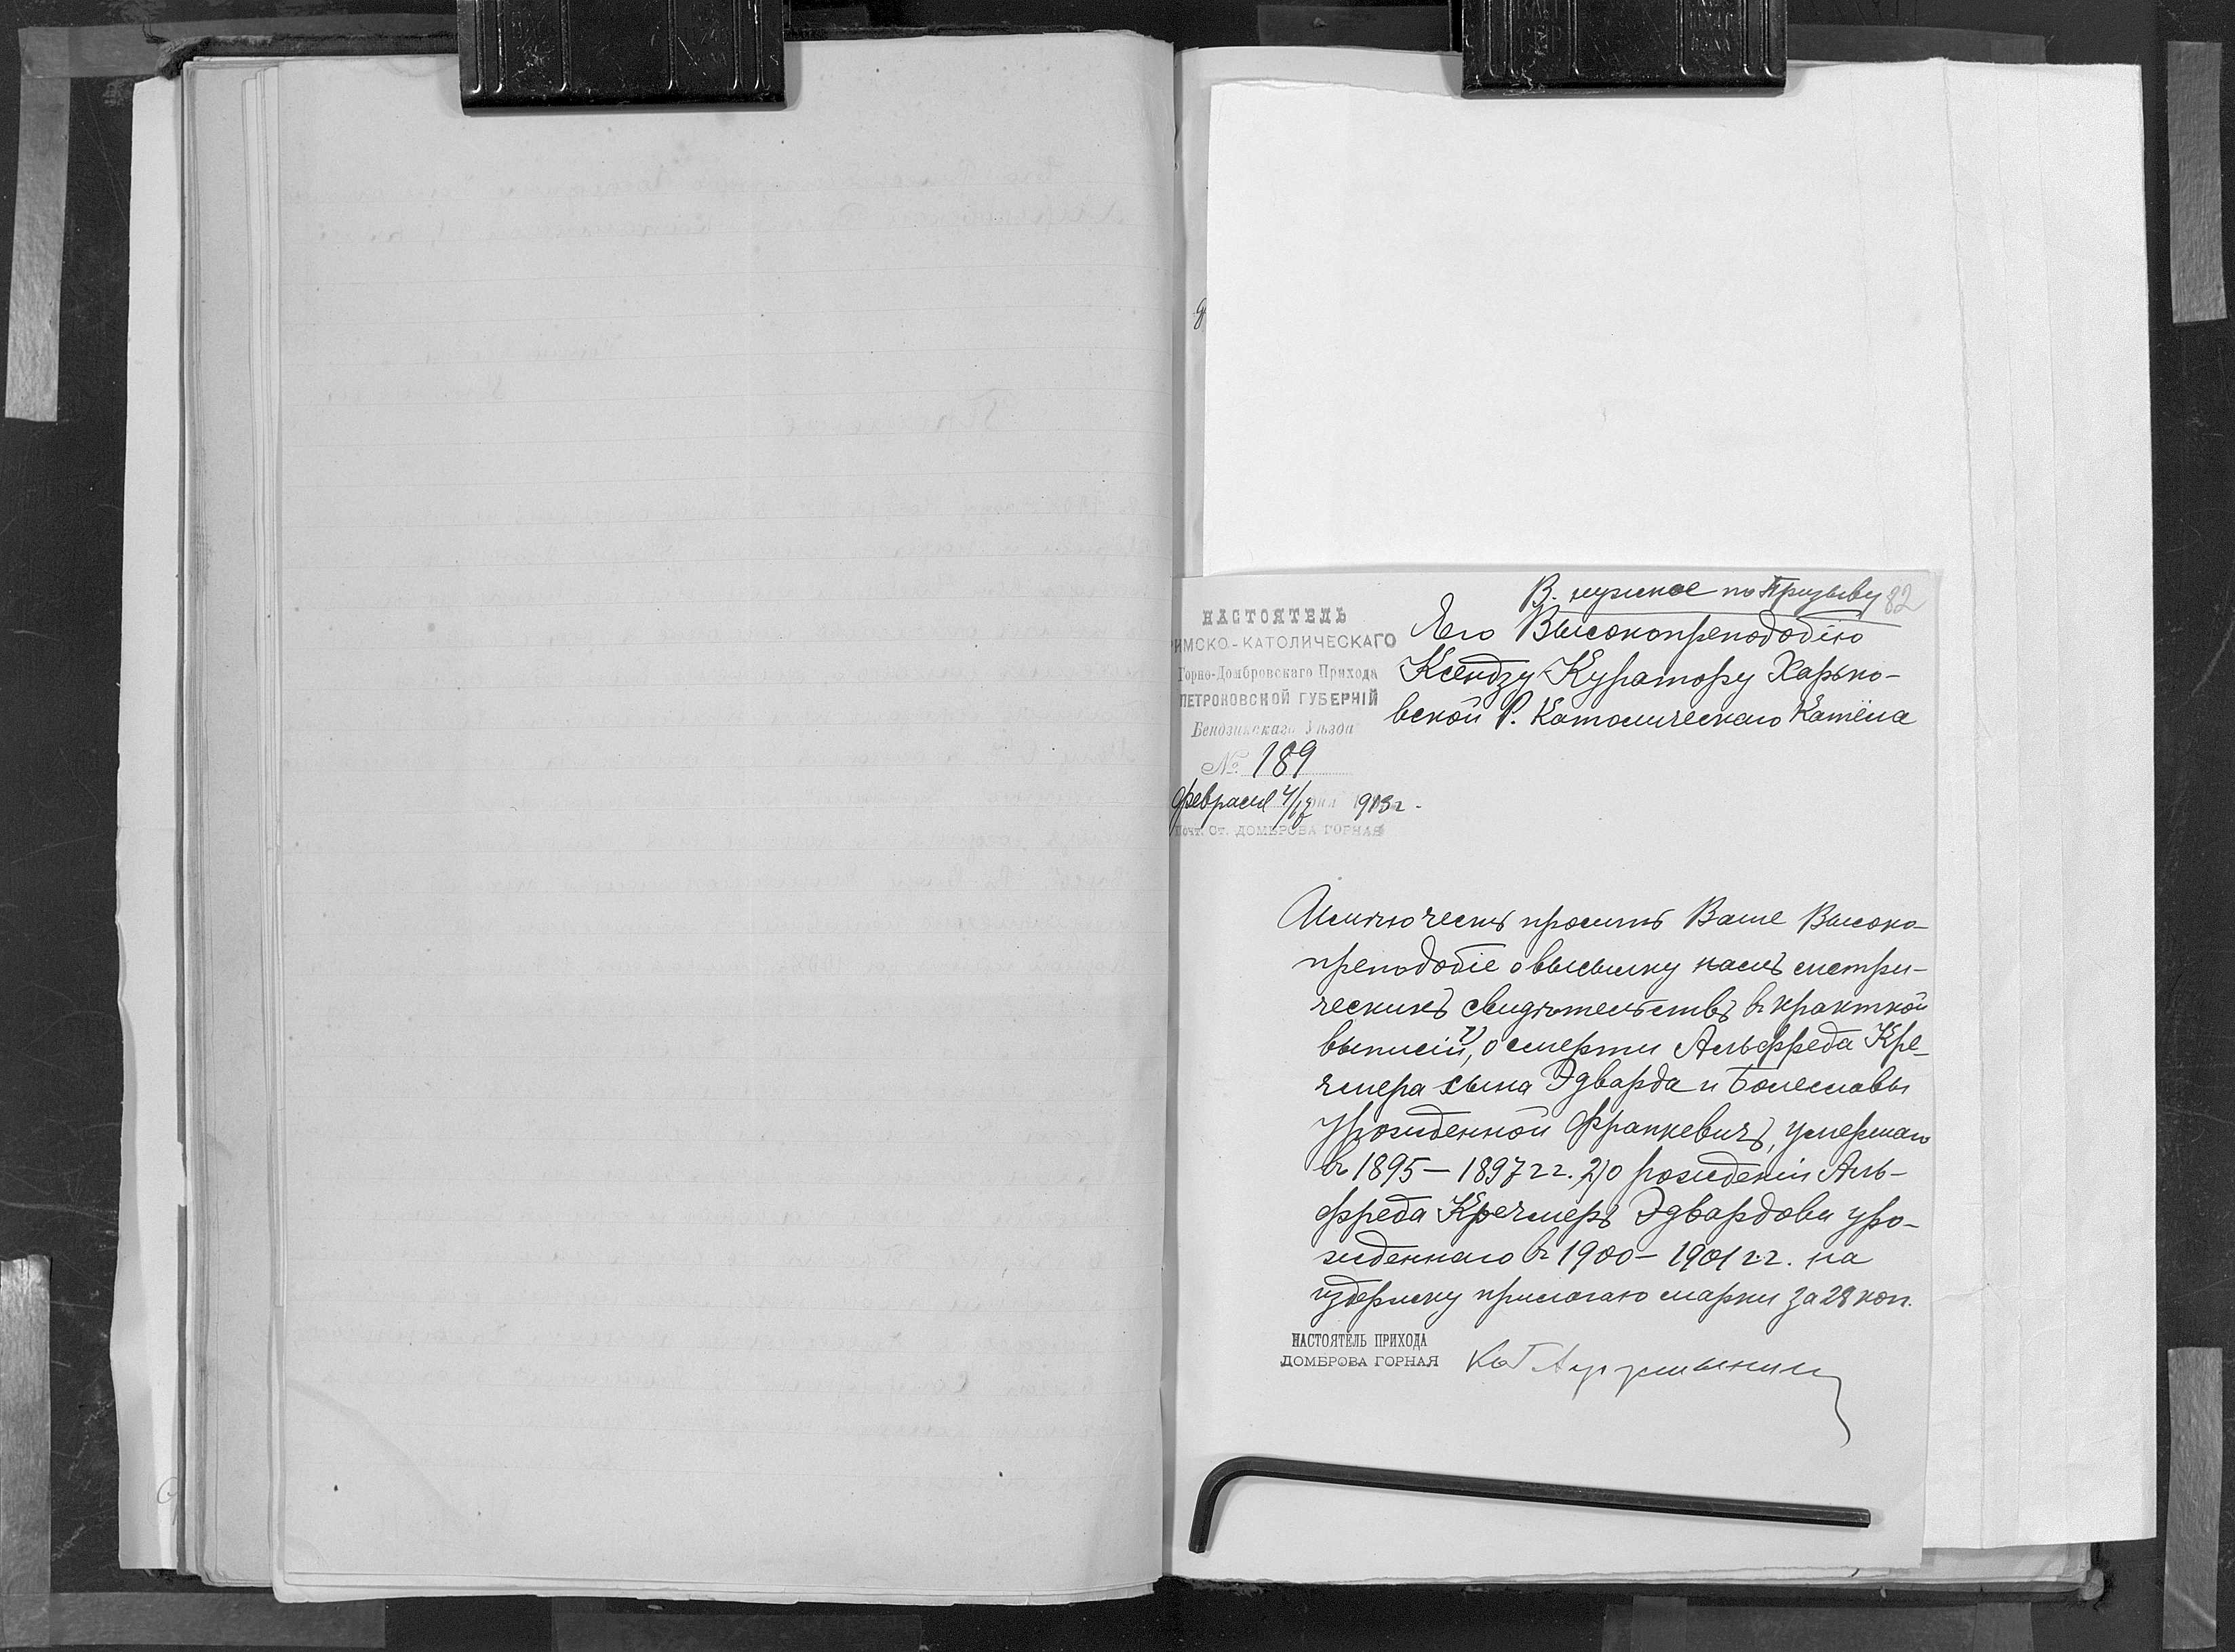 В. нужное по Призыву 82
НАСТОЯТЕЛЬ
ИМСКО-КАТОЛИЧЕСКАГО
Горно-Домбровскаго Прихода
ПЕТРОКОВСКОЙ ГУБЕРНІЙ
Бендзинскаго Уѣзда
№ 189
Февраля 4/17 дня 1913 г.
Почт. Ст. ДОМБРОВА ГОРНАЯ
Его Высокопреподобію
Ксендзу Куратору Харько-
вской Р. Католическаго Катёла
просить Ваше Высоко-
преподобіе о высылку намъ метри-
ческихъ свидѣтельствъ въ краткой
выписіи, 1) о смерти Альфреда Кре-
чмера сына Эдварда и Болеславы
урожденной Франкевичъ, умершаго
въ 1895 — 1897 гг. 2) о рожденіи Аль-
фреда Кречмеръ Эдвардови уро-
жденнаго въ 1900 — 1901 г.г. на
издержку прилагаю марки за 28 коп.
НАСТОЯТЕЛЬ ПРИХОДА
ДОМБРОВА ГОРНАЯ